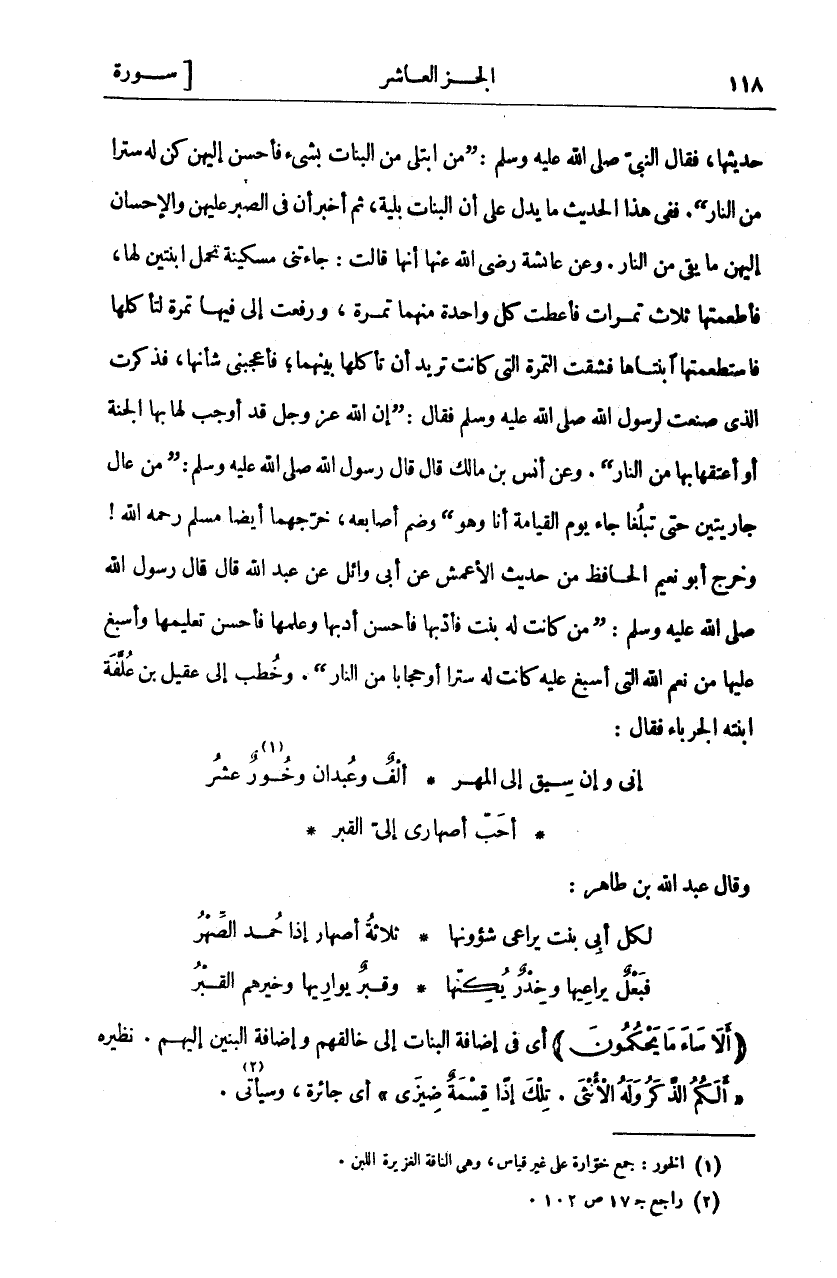 ١١٨ الجزء العاشر [ سورة
حديثها، فقال النبىّ صلى الله عليه وسلم : ”من ابتلى من البنات بشىء فأحسن إليهن كن له سترا
من النار“. ففى هذا الحديث ما يدل على أن البنات بلية، ثم أخبر أن فى الصبر عليهن والإحسان
إليهن ما يقى من النار . وعن عائشة رضى الله عنها أنها قالت : جاءتنى مسكينة تحمل ابنتين لها ،
فأطعمتها ثلاث تمرات فأعطت كل واحدة منهما تمرة ، ورفعت إلى فيها تمرة لتأكلها
فاستطعمتها ٱبنتاها فشقت التمرة التى كانت تريد أن تأكلها بينهما؛ فأعجبنى شأنها، فذكرت
الذى صنعت لرسول الله صلى الله عليه وسلم فقال : ”إن الله عز وجل قد أوجب لها بها الجنة
أو أعتقها بها من النار“ . وعن أنس بن مالك قال قال رسول الله صلى الله عليه وسلم : ”من عال
جاريتين حتى تبلُغا جاء يوم القيامة أنا وهو“ وضم أصابعه، خرّجهما أيضا مسلم رحمه الله !
وخرج أبو نعيم الحافظ من حديث الأعمش عن أبى وائل عن عبد الله قال قال رسول الله
صلى الله عليه وسلم : ”من كانت له بنت فأدّبها فأحسن أدبها وعلمها فأحسن تعليمها وأسبغ
عليها من نعم الله التى أسبغ عليه كانت له سترا أوحجابا من النار“ . وخُطب إلى عقيل بن عُلَّفَة
ابنته الجرباء فقال :
إنى وإن سِيق إلى المهر * ألْفٌ وعُبدان وخُورٌ عشرُ (١)
* أحَبّ أصهارى إلىّ القبر *
وقال عبد الله بن طاهر :
لكل أبِى بنت يراعى شؤونها * ثلاثةُ أصهار إذا حُمد الصِّهْرُ
فبَعْلٌ يراعيها وخِدْرٌ يُكِنّها * وقبرٌ يواريها وخيرهم القَبْرُ
﴿ أَلَا سَاءَ مَا يَحْكُمُونَ ﴾ أى فى إضافة البنات إلى خالقهم وإضافة البنين إليهم . نظيره
« أَلَكُمُ الذَّكَرُ وَلَهُ الْأُنْثَى . تِلْكَ إِذًا قِسْمَةٌ ضِيزَى » أى جائرة ، وسيأتى (٢) .
(١) الخور : جمع خوّارة على غير قياس، وهى الناقة الغزيرة اللبن .
(٢) راجع جـ ١٧ ص ١٠٢ .